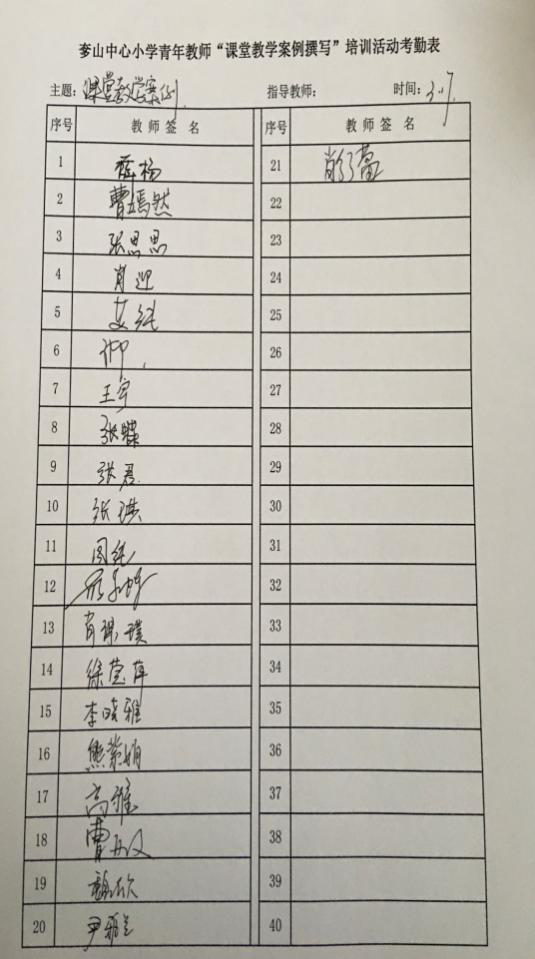 奓山中心小学青年教师“课堂教学案例撰写”培训活动考勤表
主题：课堂教学案例 指导教师： 时间：3.17
序号 教师签名 序号 教师签名
1 薛杨 21
2 曹嫣然 22
3 张思思 23
4 肖迎 24
5 艾纯 25
6 26
7 王宇 27
8 张蝶 28
9 张君 29
10 张琪 30
11 周纯 31
12 32
13 肖璞 33
14 徐莹萍 34
15 李晓雅 35
16 熊紫娟 36
17 高雅 37
18 曹 38
19 魏欣 39
20 尹雅 40